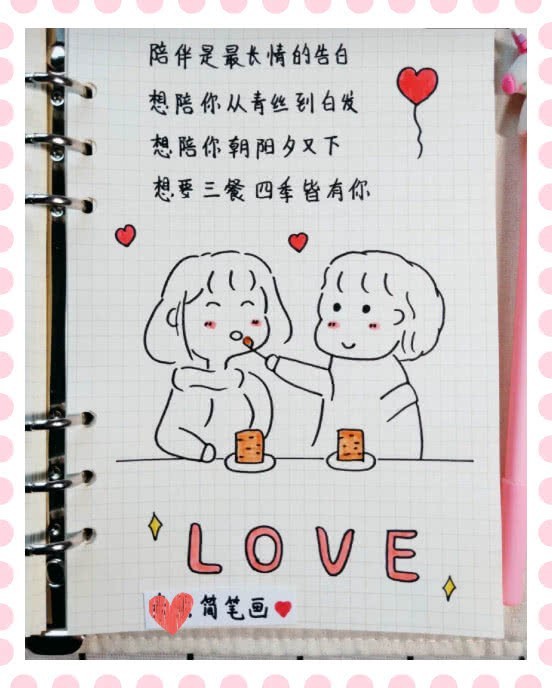 陪伴是最长情的告白
想陪你从青丝到白发
想陪你朝阳夕又下
想要三餐四季皆有你
LOVE
简笔画